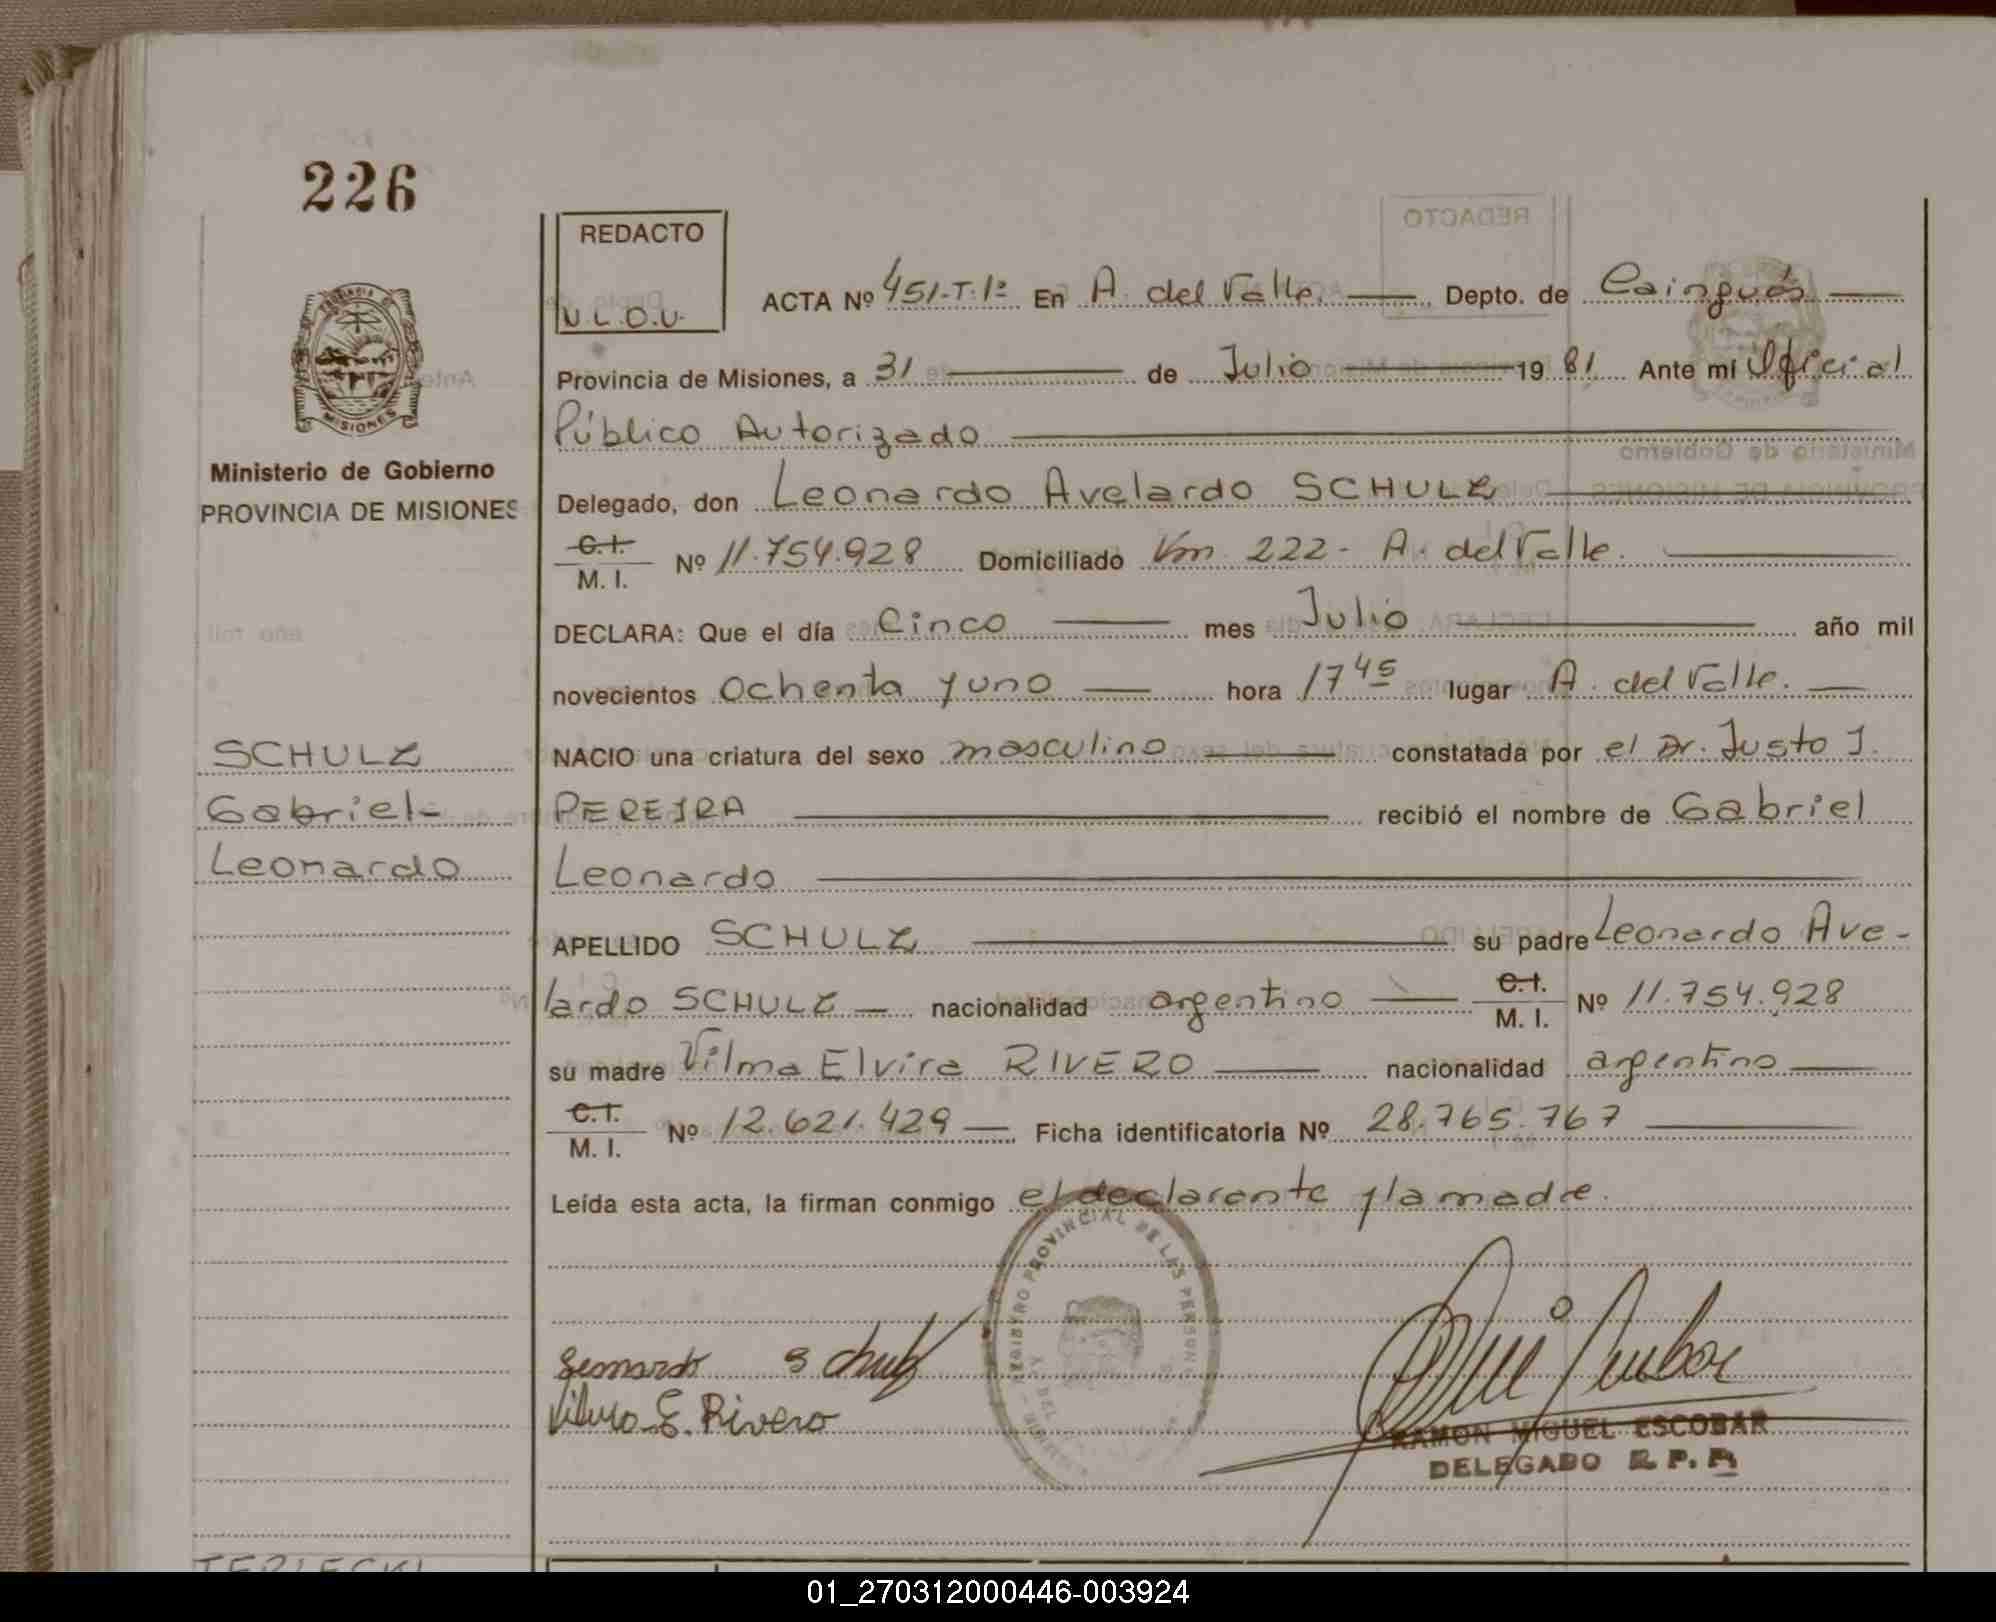 226
REDACTO
V.L.D.V.
ACTA Nº 451-T.1º En A. del Valle. Depto. de Cainguás
Provincia de Misiones, a 31 de Julio 19 81 Ante mí Oficial
Público Autorizado
Ministerio de Gobierno
PROVINCIA DE MISIONES
Delegado, don Leonardo Avelardo SCHULZ
C.I.
M. I. Nº 11.754.928 Domiciliado Km 222 - A. del Valle.
DECLARA: Que el día Cinco mes Julio año mil
novecientos Ochenta y uno hora 17 45 lugar A. del Valle.
NACIO una criatura del sexo masculino constatada por el Dr. Justo J.
PEREJRA recibió el nombre de Gabriel
Leonardo
SCHULZ
Gabriel-
Leonardo
APELLIDO SCHULZ su padre Leonardo Ave-
lardo SCHULZ nacionalidad argentino C.I.
M. I. Nº 11.754.928
su madre Vilma Elvira RIVERO nacionalidad argentino
C.I.
M. I. Nº 12.621.429 Ficha identificatoria Nº 28.765.767
Leída esta acta, la firman conmigo el declarante y la madre.
REGISTRO PROVINCIAL DE LAS PERSONAS
Leonardo Schulz
Vilma E. Rivero
RAMON MIGUEL ESCOBAR
DELEGADO R. P. P.
TERLECKI
01_270312000446-003924